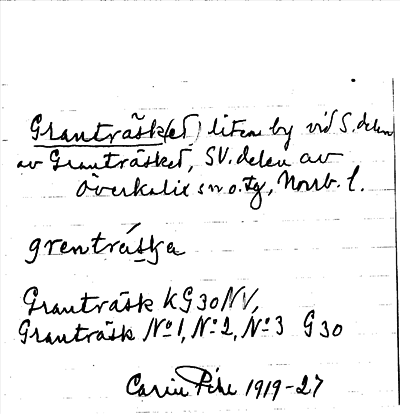 Granträsk(et) liten by vid S. delen
av Granträsket, SV. delen av
Överkalix sn o. tg, Norrb. l.
grenträska
Granträsk KG 30 NV,
Granträsk No 1, No 2, No 3 G 30
Carin Pihl 1919-27